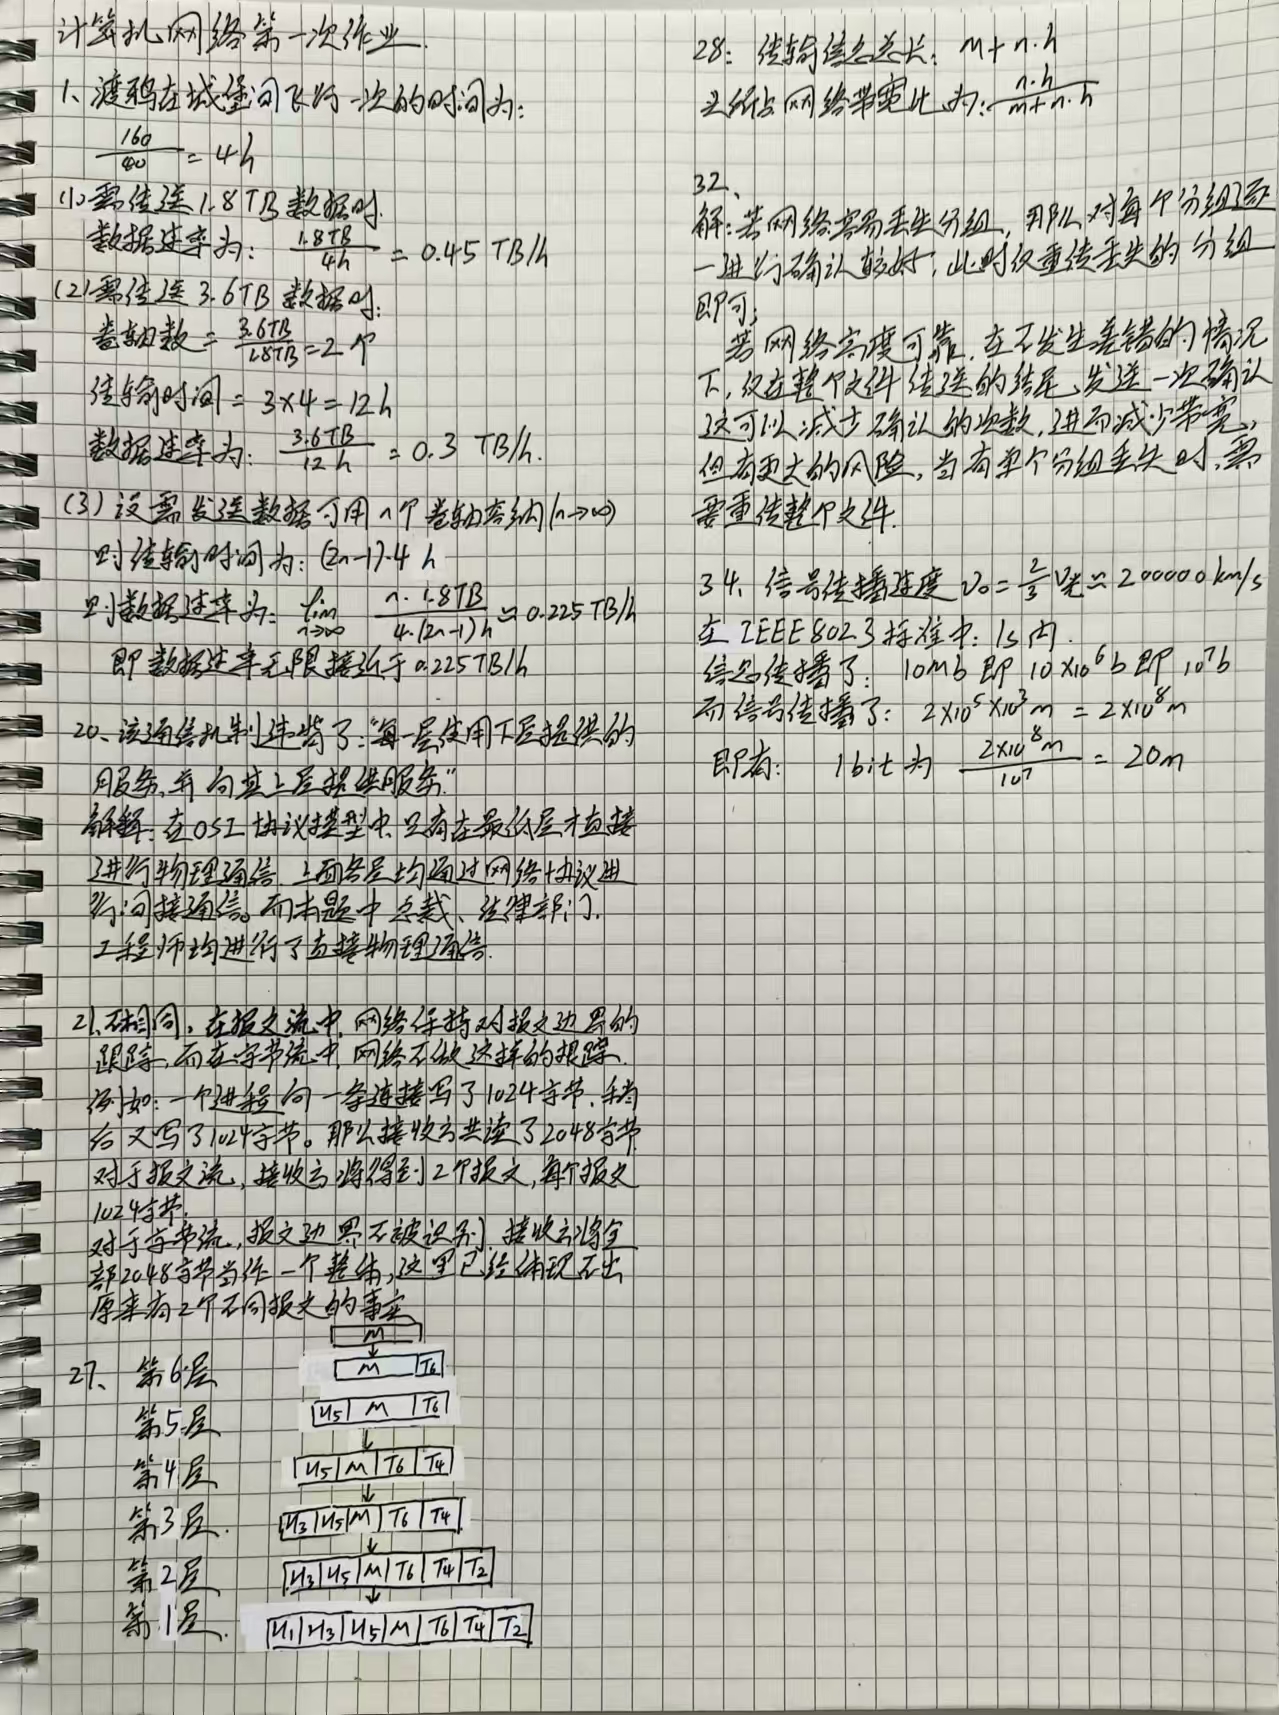 计算机网络第一次作业.
1、渡鸦在城堡间飞行一次的时间为:
160/40 = 4h
(1)需传送1.8TB数据时.
数据速率为: 1.8TB/4h = 0.45 TB/h
(2)需传送3.6TB数据时:
卷轴数 = 3.6TB/1.8TB = 2个
传输时间 = 3×4 = 12h
数据速率为: 3.6TB/12h = 0.3 TB/h.
(3)设需发送数据可用n个卷轴容纳(n→∞)
则传输时间为: (2n-1)·4 h
则数据速率为: lim n→∞ n·1.8TB/4·(2n-1)h ≈ 0.225TB/h
即数据速率无限接近于0.225TB/h
20、该通信机制违背了:"每一层使用下层提供的
服务,并向其上层提供服务."
解释:在OSI协议模型中,只有在最低层才直接
进行物理通信.上面各层均通过网络协议进
行间接通信。而本题中总裁、法律部门、
工程师均进行了直接物理通信.
21、不相同,在报文流中,网络保持对报文边界的
跟踪,而在字节流中,网络不做这样的跟踪.
例如:一个进程向一条连接写了1024字节,稍
后又写了1024字节。那么接收方共读了2048字节
对于报文流,接收方将得到2个报文,每个报文
1024字节.
对于字节流,报文边界不被识别,接收方将全
部2048字节当作一个整体,这里已经体现不出
原来有2个不同报文的事实
M
27、 第6层 M T6
第5层 H5 M T6
第4层 H5 M T6 T4
第3层. H3 H5 M T6 T4
第2层 H3 H5 M T6 T4 T2
第1层. H1 H3 H5 M T6 T4 T2
28: 传输信息总长: m+n·h
头所占网络带宽比为: n·h/m+n·h
32、
解:若网络容易丢失分组,那么对每个分组逐
一进行确认较好,此时仅重传丢失的分组
即可;
若网络高度可靠,在不发生差错的情况
下,仅在整个文件传送的结尾发送一次确认
这可以减少确认的次数,进而减少带宽,
但有更大的风险,当有单个分组丢失时,需
要重传整个文件.
34、信号传播速度 v₀=2/3 v光≈200000km/s
在IEEE802.3标准中:1s内.
信息传播了: 10Mb 即 10×10⁶b 即 10⁷b
而信号传播了: 2×10⁵×10³m = 2×10⁸m
即有: 1bit为 2×10⁸m/10⁷ = 20m